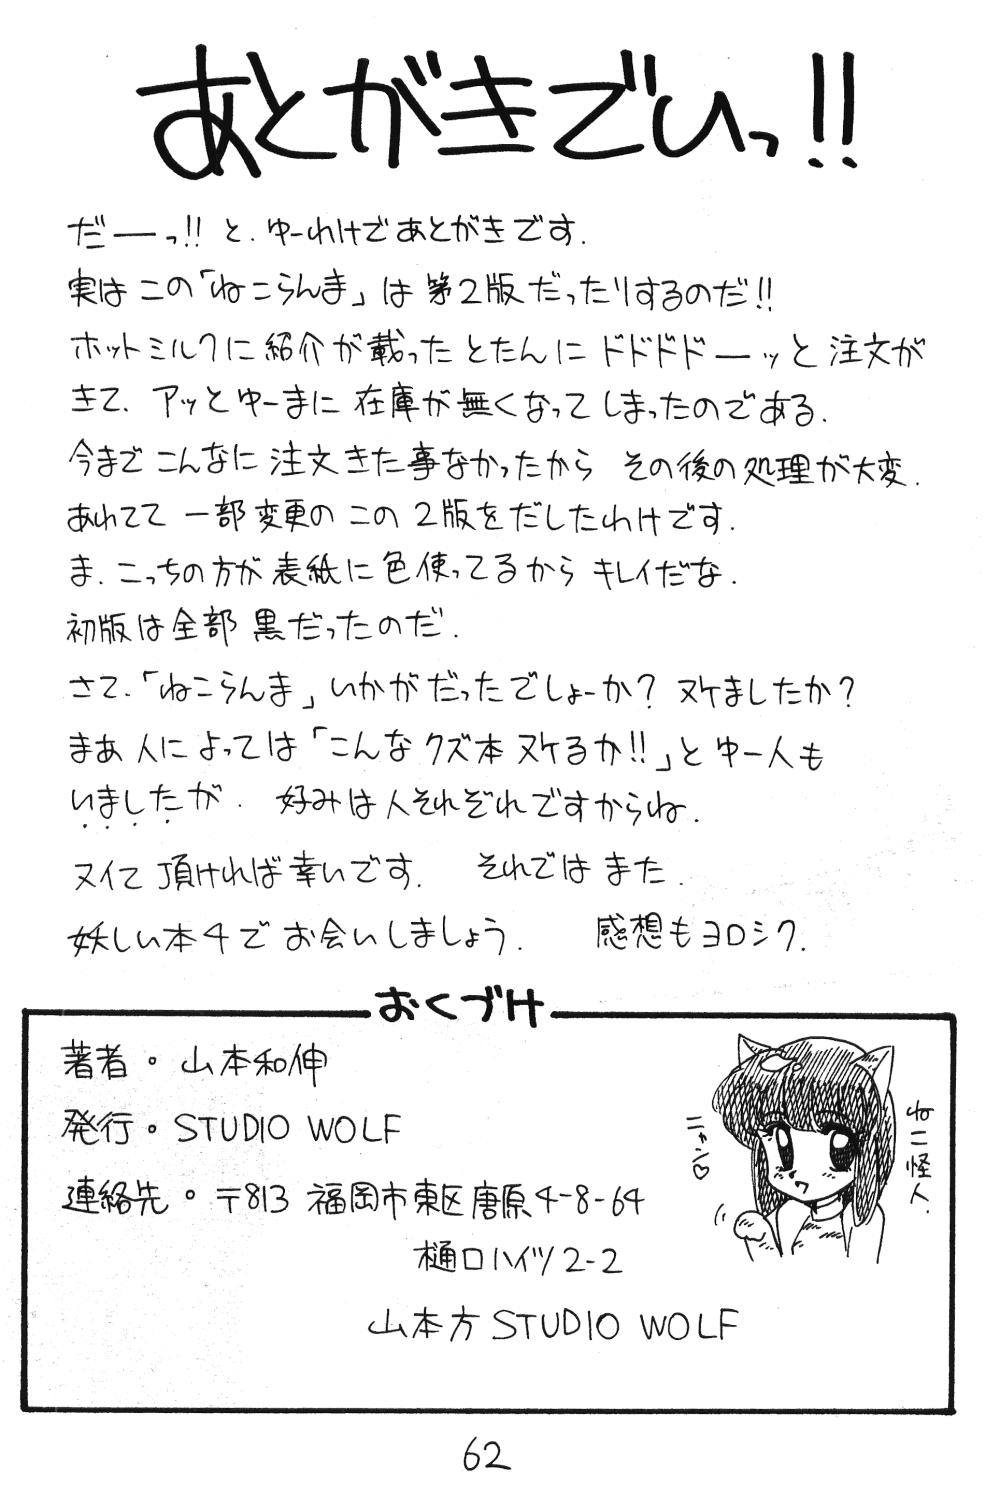 あとがきでいっ!!
だーっ!! と、ゆーわけであとがきです.
実はこの「ねこらんま」は第2版だったりするのだ!!
ホットミルクに紹介が載ったとたんにドドドドーッと注文が
きて、アッとゆーまに在庫が無くなってしまったのである.
今までこんなに注文きた事なかったから その後の処理が大変.
あわてて 一部変更のこの2版をだしたわけです.
ま、こっちの方が表紙に色使ってるからキレイだな.
初版は全部黒だったのだ.
さて、「ねこらんま」いかがだったでしょーか? ヌケましたか?
まあ人によっては「こんなクズ本ヌケるか!!」とゆー人も
いましたが. 好みは人それぞれですからね.
ヌイて頂ければ幸いです. それではまた.
妖しい本4でお会いしましょう. 感想もヨロシク.
おくづけ
著者・山本和伸
発行・STUDIO WOLF
連絡先・〒813 福岡市東区唐原4-8-64
樋口ハイツ2-2
山本方 STUDIO WOLF
ニャン♡
ねこ怪人.
62